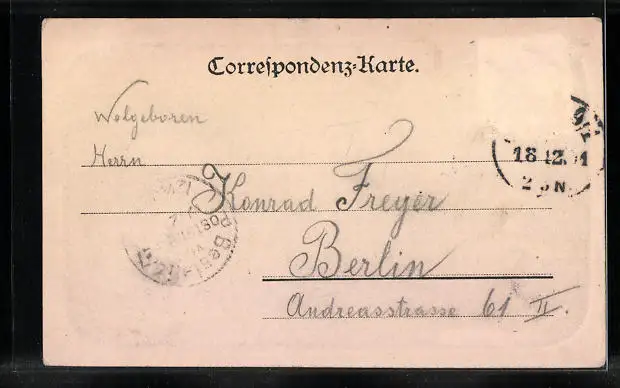 Correspondenz-Karte.
Wolgeboren
Herrn
Konrad Freyer
Berlin
Andreasstrasse 61 II.
18 12
2-3N